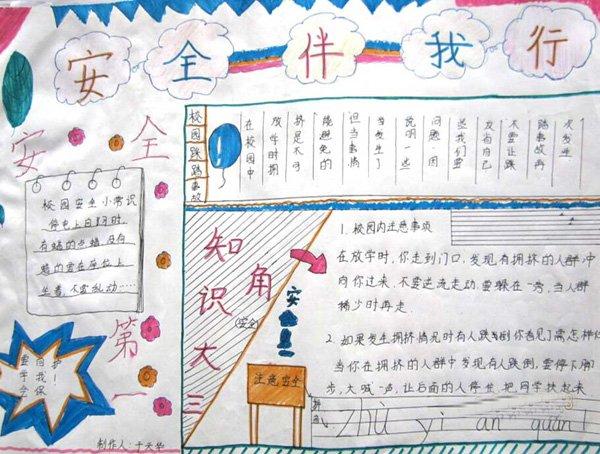 安全伴我行
安全第一
校园安全小常识
停电上自习时,
有蜡的点蜡,没有
蜡的要在座位上
坐着,不要乱动……
要学会自我保护!
制作人:
在校园中
放学时拥
挤是不可
能避免的
但当事情
当发生了
说明一些
问题,因
此我们要
不要让践
踏事故再
次发生
知识大三角
(安全)
注意安全
1. 校园内注意事项
在放学时,你走到门口,发现有拥挤的人群冲
向你过来,不要逆流走动,要躲在一旁,当人群
稀少时再走.
2. 如果发生拥挤情况时有人跌倒你看见了需怎样做
当你在拥挤的人群中发现有人跌倒,要停下脚
步,大喊一声,让后面的人停止,把同学扶起来
拼音:
zhù yì ān quán!